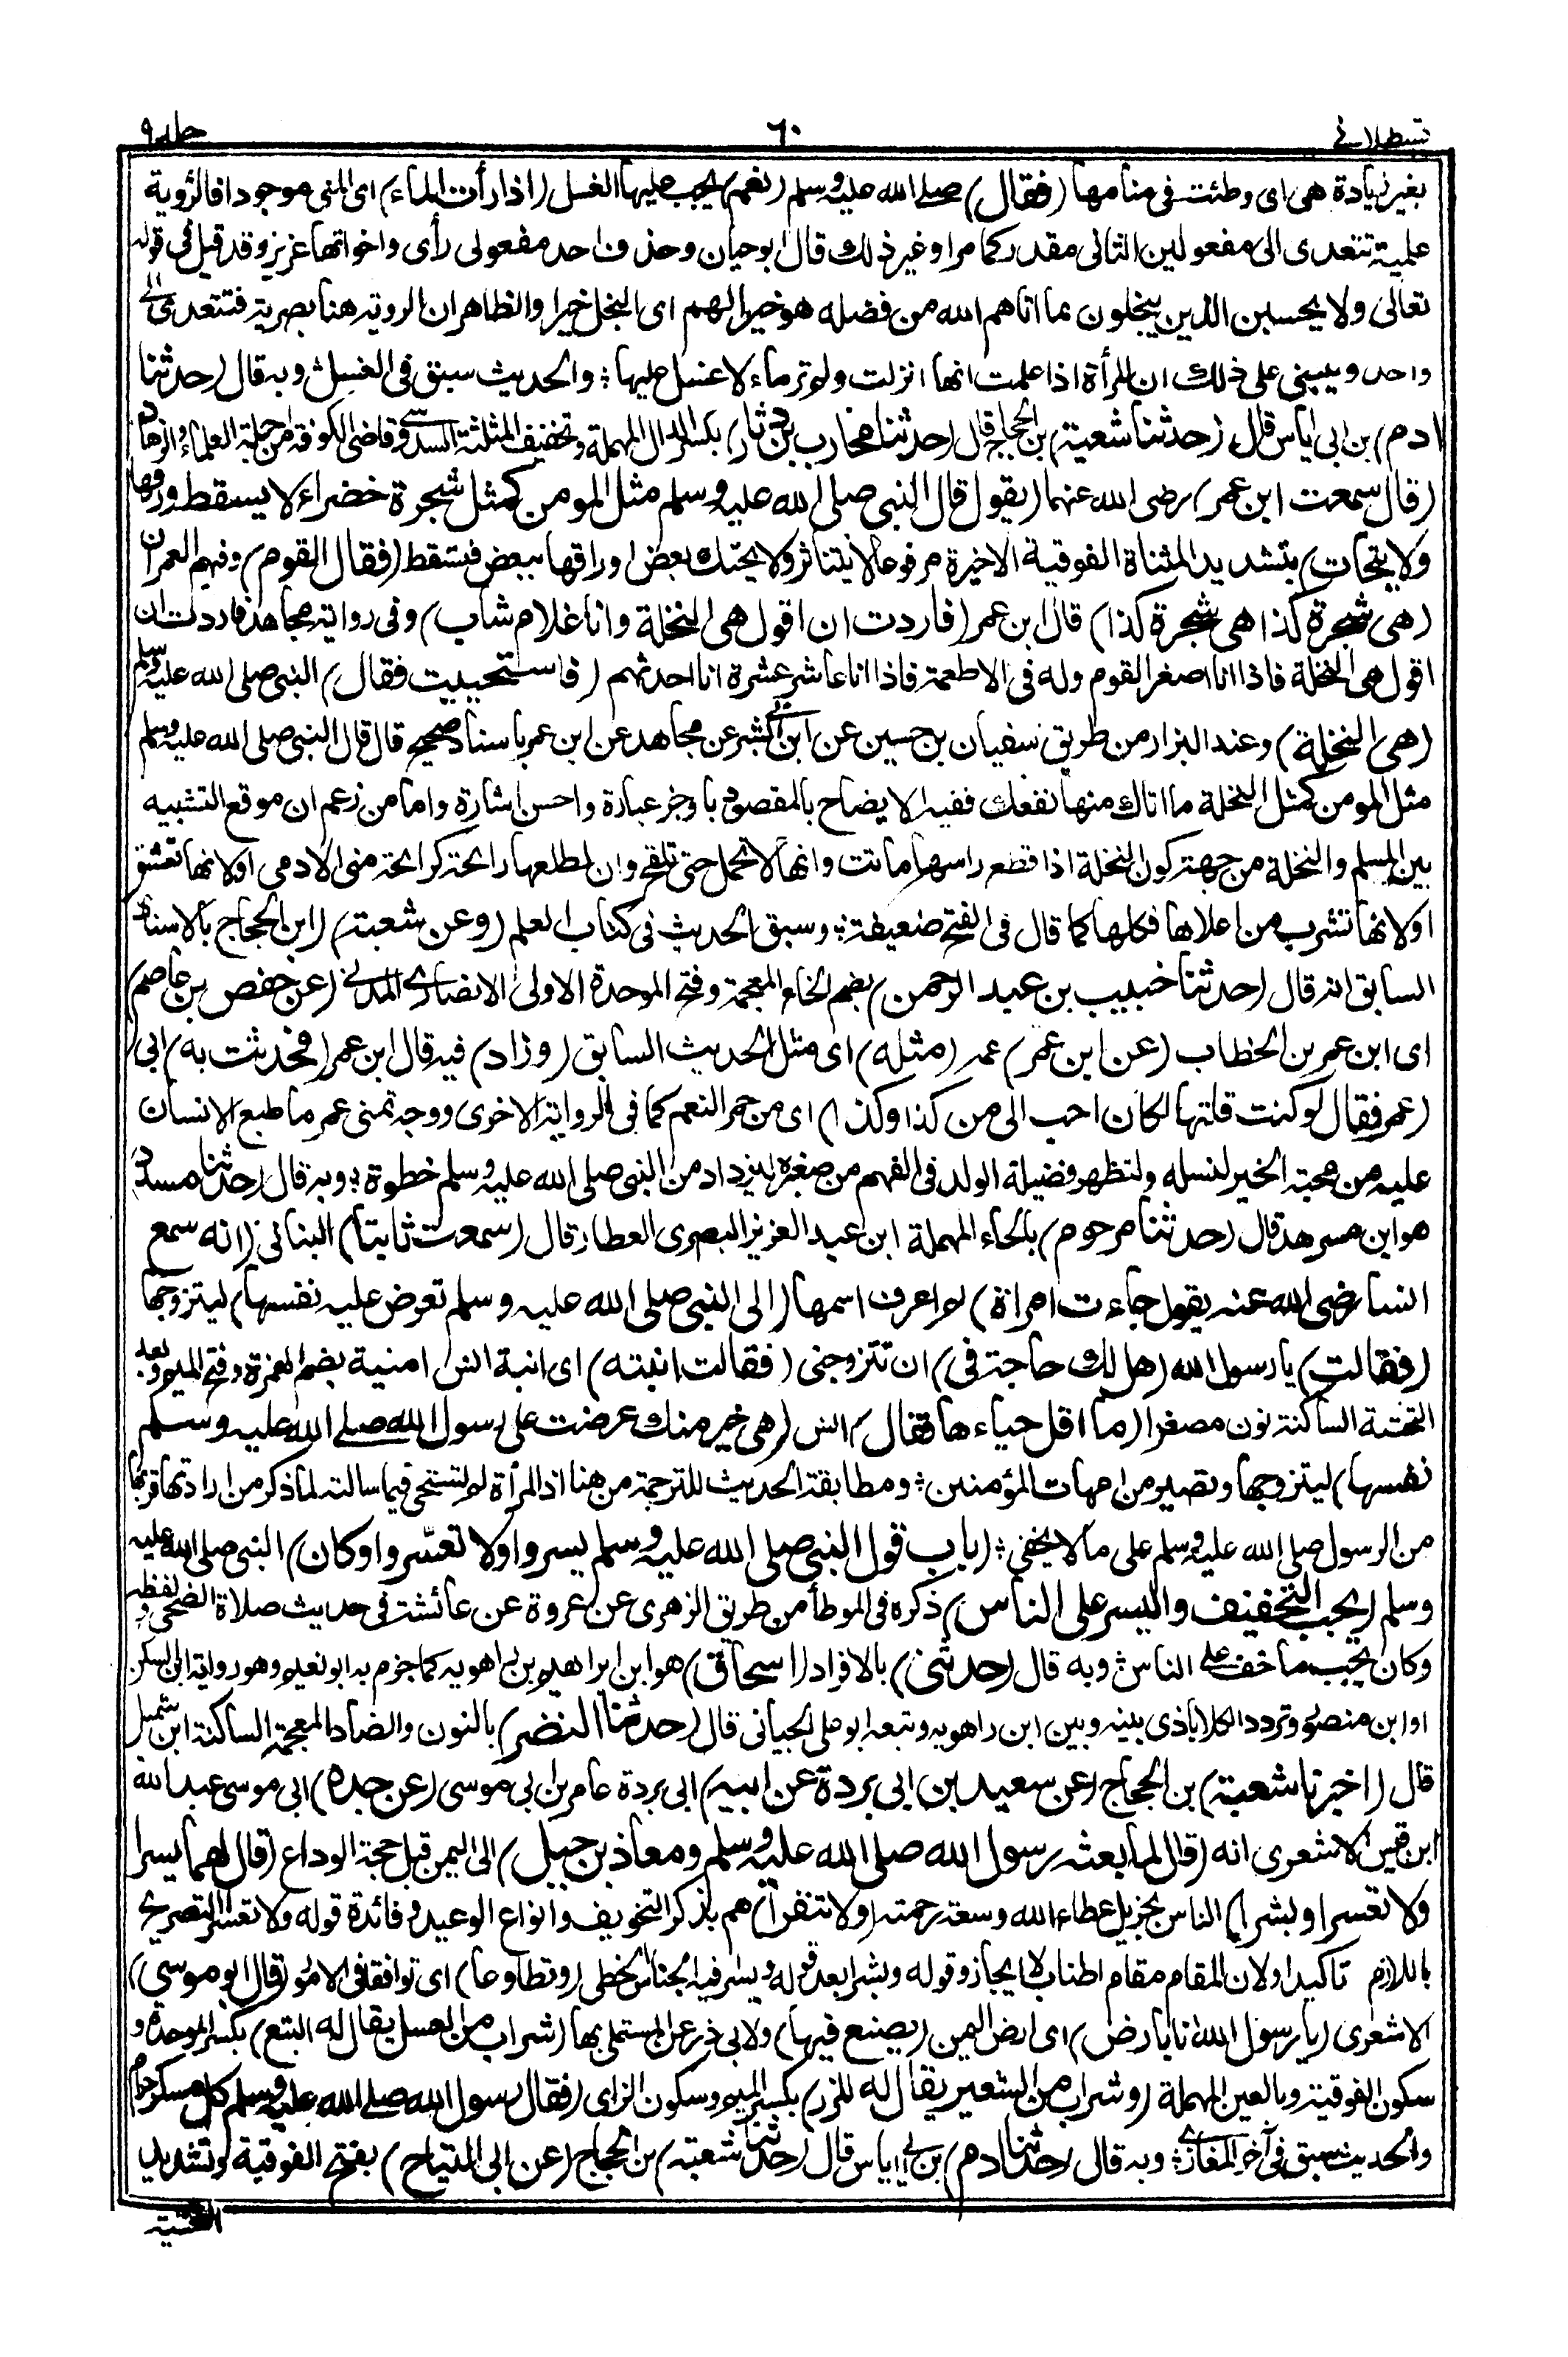 قسطلانى ٦٠ جلد ٩
بغير زيادة هى اى وطئت فى منامها (فقال) صلى الله عليه وسلم (نعم) يجب عليها الغسل (اذا رأت الماء) اى المنى موجودا فالرؤية
علمية تتعدى الى مفعولين الثانى مقدر كما مر او غير ذلك قال ابوحيان وحذف احد مفعولى رأى واخواتها عزيز وقد قيل فى قوله
تعالى ولا يحسبن الذين يبخلون بما اتاهم الله من فضله هو خيرا لهم اى البخل خيرا والظاهر ان الروية هنا بصرية فتتعدى الى
واحد ويبنى على ذلك ان المرأة اذا علمت انها انزلت ولم تر ماء لا غسل عليها ؛ والحديث سبق فى الغسل ؛ وبه قال (حدثنا
ادم) بن ابى اياس قال (حدثنا شعبة) بن الحجاج قال (حدثنا محارب بن دثار) بكسر الدال المهملة وتخفيف المثلثة السدسى قاضى الكوفة من جلة العلماء والزهاد
(قال سمعت ابن عمر) رضى الله عنهما (يقول قال النبى صلى الله عليه وسلم مثل المومن كمثل شجرة خضراء لا يسقط ورقها
ولا يتحات) بتشديد المثناة الفوقية الاخيرة مرفوعا لا يتناثر ولا يحتك بعض اوراقها ببعض فتسقط (فقال القوم) وفيهم العمران
(هى شجرة كذا هى شجرة كذا) قال ابن عمر (فاردت ان اقول هى النخلة وانا غلام شاب) وفى رواية مجاهد فاردت ان
اقول هى النخلة فاذا انا اصغر القوم وله فى الاطعمة فاذا انا عاشر عشرة انا احدثهم (فاستحييت فقال) النبى صلى الله عليه وسلم
(هى النخلة) وعند البزار من طريق سفيان بن حسين عن ابى بشر عن مجاهد عن ابن عمر باسناد صحيح قال قال النبى صلى الله عليه وسلم
مثل المومن كمثل النخلة ما اتاك منها نفعك ففيه الايضاح بالمقصود باوجز عبارة واحسن اشارة واما من زعم ان موقع التشبيه
بين المسلم والنخلة من جهة كون النخلة اذا قطع راسها ماتت وانها لا تحمل حتى تلقح وان لطلعها رائحة كرائحة منى الادمى اولانها تعشق
اولانها تشرب من اعلاها فكلها كما قال فى الفتح ضعيفة ؛ وسبق الحديث فى كتاب العلم (وعن شعبة) (ابن الحجاج بالاسناد
السابق انه قال (حدثنا خبيب بن عبد الرحمن) بضم الخاء المعجمة وفتح الموحدة الاولى الانصارى المدنى (عن حفص بن عاصم)
اى ابن عمر بن الخطاب (عن ابن عمر) عمه (مثله) اى مثل الحديث السابق (وزاد) فيه قال ابن عمر (فحدثت به) ابى
(عمر فقال لو كنت قلتها لكان احب الى من كذا وكذا) اى من حمر النعم كما فى الرواية الاخرى ووجه تمنى عمر ما طبع الانسان
عليه من محبة الخير لنسله ولتظهر فضيلة الولد فى الفهم من صغره ليزداد من النبى صلى الله عليه وسلم خطوة ؛ وبه قال (حدثنا مسدد)
هو ابن مسرهد قال (حدثنا مرحوم) بالحاء المهملة ابن عبد العزيز البصرى العطار قال (سمعت ثابتا) البنانى (انه سمع
انسا رضى الله عنه يقول جاءت امراة) لم اعرف اسمها (الى النبى صلى الله عليه وسلم تعرض عليه نفسها) ليتزوجها
(فقالت) يا رسول الله (هل لك حاجة فى) ان تتزوجنى (فقالت ابنته) اى ابنة انس امنية بضم الهمزة وفتح الميم وبعد
التحتة الساكنة نون مصغرا (ما اقل حياءها فقال) انس (هى خير منك عرضت على رسول الله صلى الله عليه وسلم
نفسها) ليتزوجها وتصير من امهات المؤمنين ؛ ومطابقة الحديث للترجمة من هنا اذ المرأة لم تستحى فيما سالته لما ذكر من ارادتها قربها
من الرسول صلى الله عليه وسلم على ما لا يخفى ؛ (باب قول النبى صلى الله عليه وسلم يسروا ولا تعسروا وكان) النبى صلى الله عليه
وسلم (يحب التخفيف واليسر على الناس) ذكره فى الموطأ من طريق الزهرى عن عروة عن عائشة فى حديث صلاة الضحى ولفظه
وكان يحب ما خف على الناس ؛ وبه قال (حدثنى) بالافراد (اسحاق) هو ابن ابراهيم بن راهويه كما جزم به ابو نعيم وهو رواية ابن السكن
او ابن منصور وتردد الكلاباذى بينه وبين ابن راهويه وتبعه ابو على الجيانى قال (حدثنا النضر) بالنون والضاد المعجمة الساكنة ابن شميل
قال (اخبرنا شعبة) بن الحجاج (عن سعيد بن ابى بردة عن ابيه) ابى بردة عامر بن ابى موسى (عن جده) ابى موسى عبد الله
ابن قيس الاشعرى انه (قال لما بعثه رسول الله صلى الله عليه وسلم ومعاذ بن جبل) الى اليمن قبل حجة الوداع (قال لهما يسرا
ولا تعسرا وبشرا) الناس بجزيل عطاء الله وسعة رحمته (ولا تنفرا) هم بذكر التخويف وانواع الوعيد وفائدة قوله ولا تعسرا التصريح
باللازم تاكيدا ولان المقام مقام اطناب لا ايجاز وقوله وبشرا بعد قوله ويسرا فيه الجناس الخطى (وتطاوعا) اى توافقا فى الامور (قال ابو موسى)
الاشعرى (يا رسول الله انا بارض) اى ارض اليمن (يصنع فيها) ولابى ذر عن المستملى بها (شراب من العسل يقال له البتع) بكسر الموحدة و
سكون الفوقية وبالعين المهملة (وشراب من الشعير يقال له المزر) بكسر الميم وسكون الزاى (فقال رسول الله صلى الله عليه وسلم كل مسكر حرام
والحديث سبق فى آخر المغازى ؛ وبه قال (حدثنا ادم) بن ابى اياس قال (حدثنا شعبة) بن الحجاج (عن ابى التياح) بفتح الفوقية وتشديد
التحتية